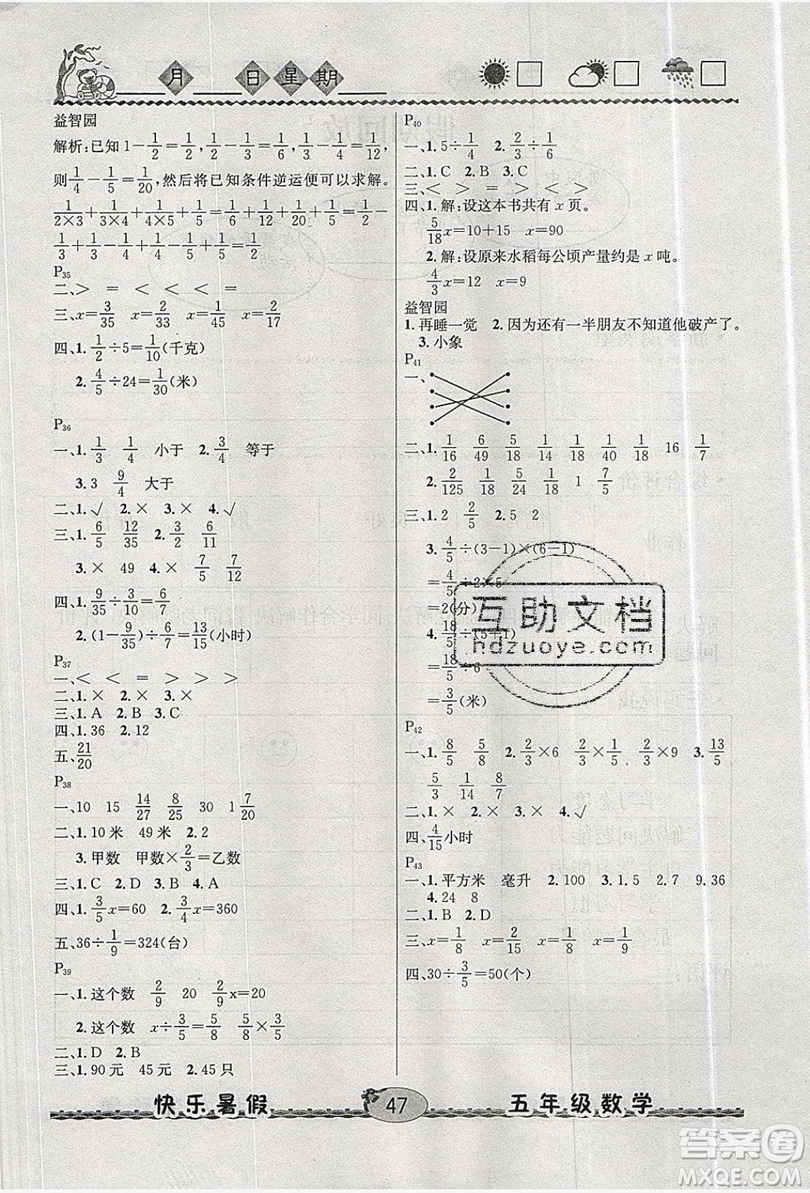 月 日 星 期
益智园
解析:已知 1-1/2=1/2, 1/2-1/3=1/6, 1/3-1/4=1/12,
则 1/4-1/5=1/20,然后将已知条件逆运便可以求解。
1/(2×3)+1/(3×4)+1/(4×5)+1/(5×6)=1/2-1/3+1/3-
1/4+1/4-1/5+1/5-1/6=1/2-1/6=1/3
P35
二、> = < < < =
三、x=3/35 x=2/15 x=1/10 x=2/17
四、1. 1/2÷5=1/10(千克)
2. 4/5÷24=1/30(米)
P36
一、1. 1/3 1/4 小于 2. 3/4 等于
3. 3 9/4 大于
二、1. √ 2. × 3. × 4. √
三、1. 6/5 12/35 2. 3/2 6/11
3. × 49 4. × 15/7
四、1. 9/35÷3/10=6/7
2. (1-9/35)÷6/7=13/15(小时)
P37
一、< = < > > >
二、1. √ 2. × 3. ×
三、1. A 2. B 3. C
四、1. 36 2. 12
五、21/20
P38
一、10 15 14/27 8/25 30 1 7/20
二、1. 10 米 49 米 2. 2
3. 甲数 甲数×2/3=乙数
三、1. C 2. D 3. B 4. A
四、1. 3/5x=60 2. 4/5x=360
五、36÷1/9=324(台)
P39
一、1. 这个数 2/9 20 2/9x=20
2. 这个数 x÷3/5=5/8 5/8×3/5
二、1. D 2. B
三、1. 90 元 45 元 2. 45 只
P40
一、1. 5÷1/4 2. 3/5÷1/6
二、1. C 2. B
三、< > = <
四、1. 解:设这本书共有 x 页。
5/18x=10+15 x=90
2. 解:设原来水稻每公顷产量约是 x 吨。
4/3x=12 x=9
益智园
1. 再睡一觉 2. 因为还有一半朋友不知道他破产了。
3. 小象
P41
一、
二、1. 1/16 6/49 5/18 1/14 1/40 1/18 16 1/7
2. 2/125 1/18 5/14 1/18 7/5
三、1. 2 2/5 2. 5 2
3. 4/5÷(3-1)×(6-1)
=4/5÷2×5
=2(分)
=3/5(米)
P42
一、1. 8/5 5/8 2. 2/3×6 3/2×6 2/3×9 3. 13/5
5/3 3/14 8/15
二、1. × 2. × 3. × 4. √
四、4/15小时
P43
一、1. 平方米 毫升 2. 100 3. 1.5 2.7 9.36
4. 24 8
二、1. B 2. D
三、x=1/8 x=1/2 x=9/8 x=5/9
四、30÷3/5=50(个)
互助文档
hdzuoye.com
快乐暑假 47 五年级数学
答案圈
MXQE.COM